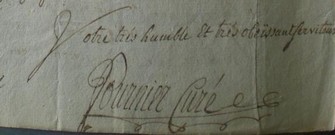 Votre très humble et très obéissant serviteur
Fournier Curé